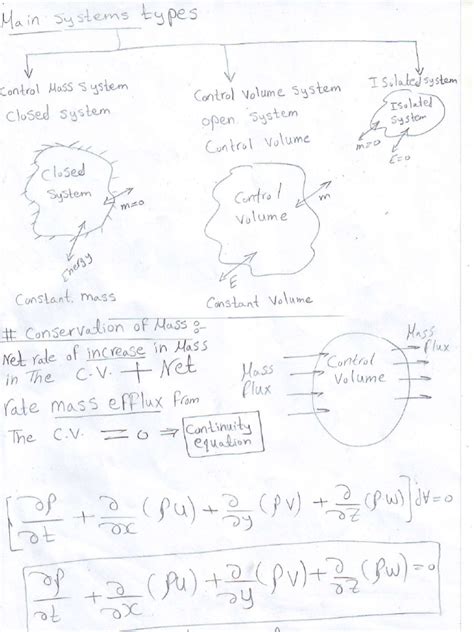 Main systems types
Control Mass System
Closed system
Control Volume System
open system
Control Volume
Isolated system
Isolated
System
m=0
E=0
Closed
System
m=0
Energy
Control
Volume
m
E
Constant mass
Constant Volume
# Conservation of Mass :-
Net rate of increase in Mass
in The C.V. + Net
rate mass efflux from
The C.V. = 0 ⇒ Continuity
equation
Mass
flux
Control
Volume
Mass
flux
[∂ρ/∂t + ∂/∂x (ρu) + ∂/∂y (ρv) + ∂/∂z (ρw)] dV = 0
∂ρ/∂t + ∂/∂x (ρu) + ∂/∂y (ρv) + ∂/∂z (ρw) = 0